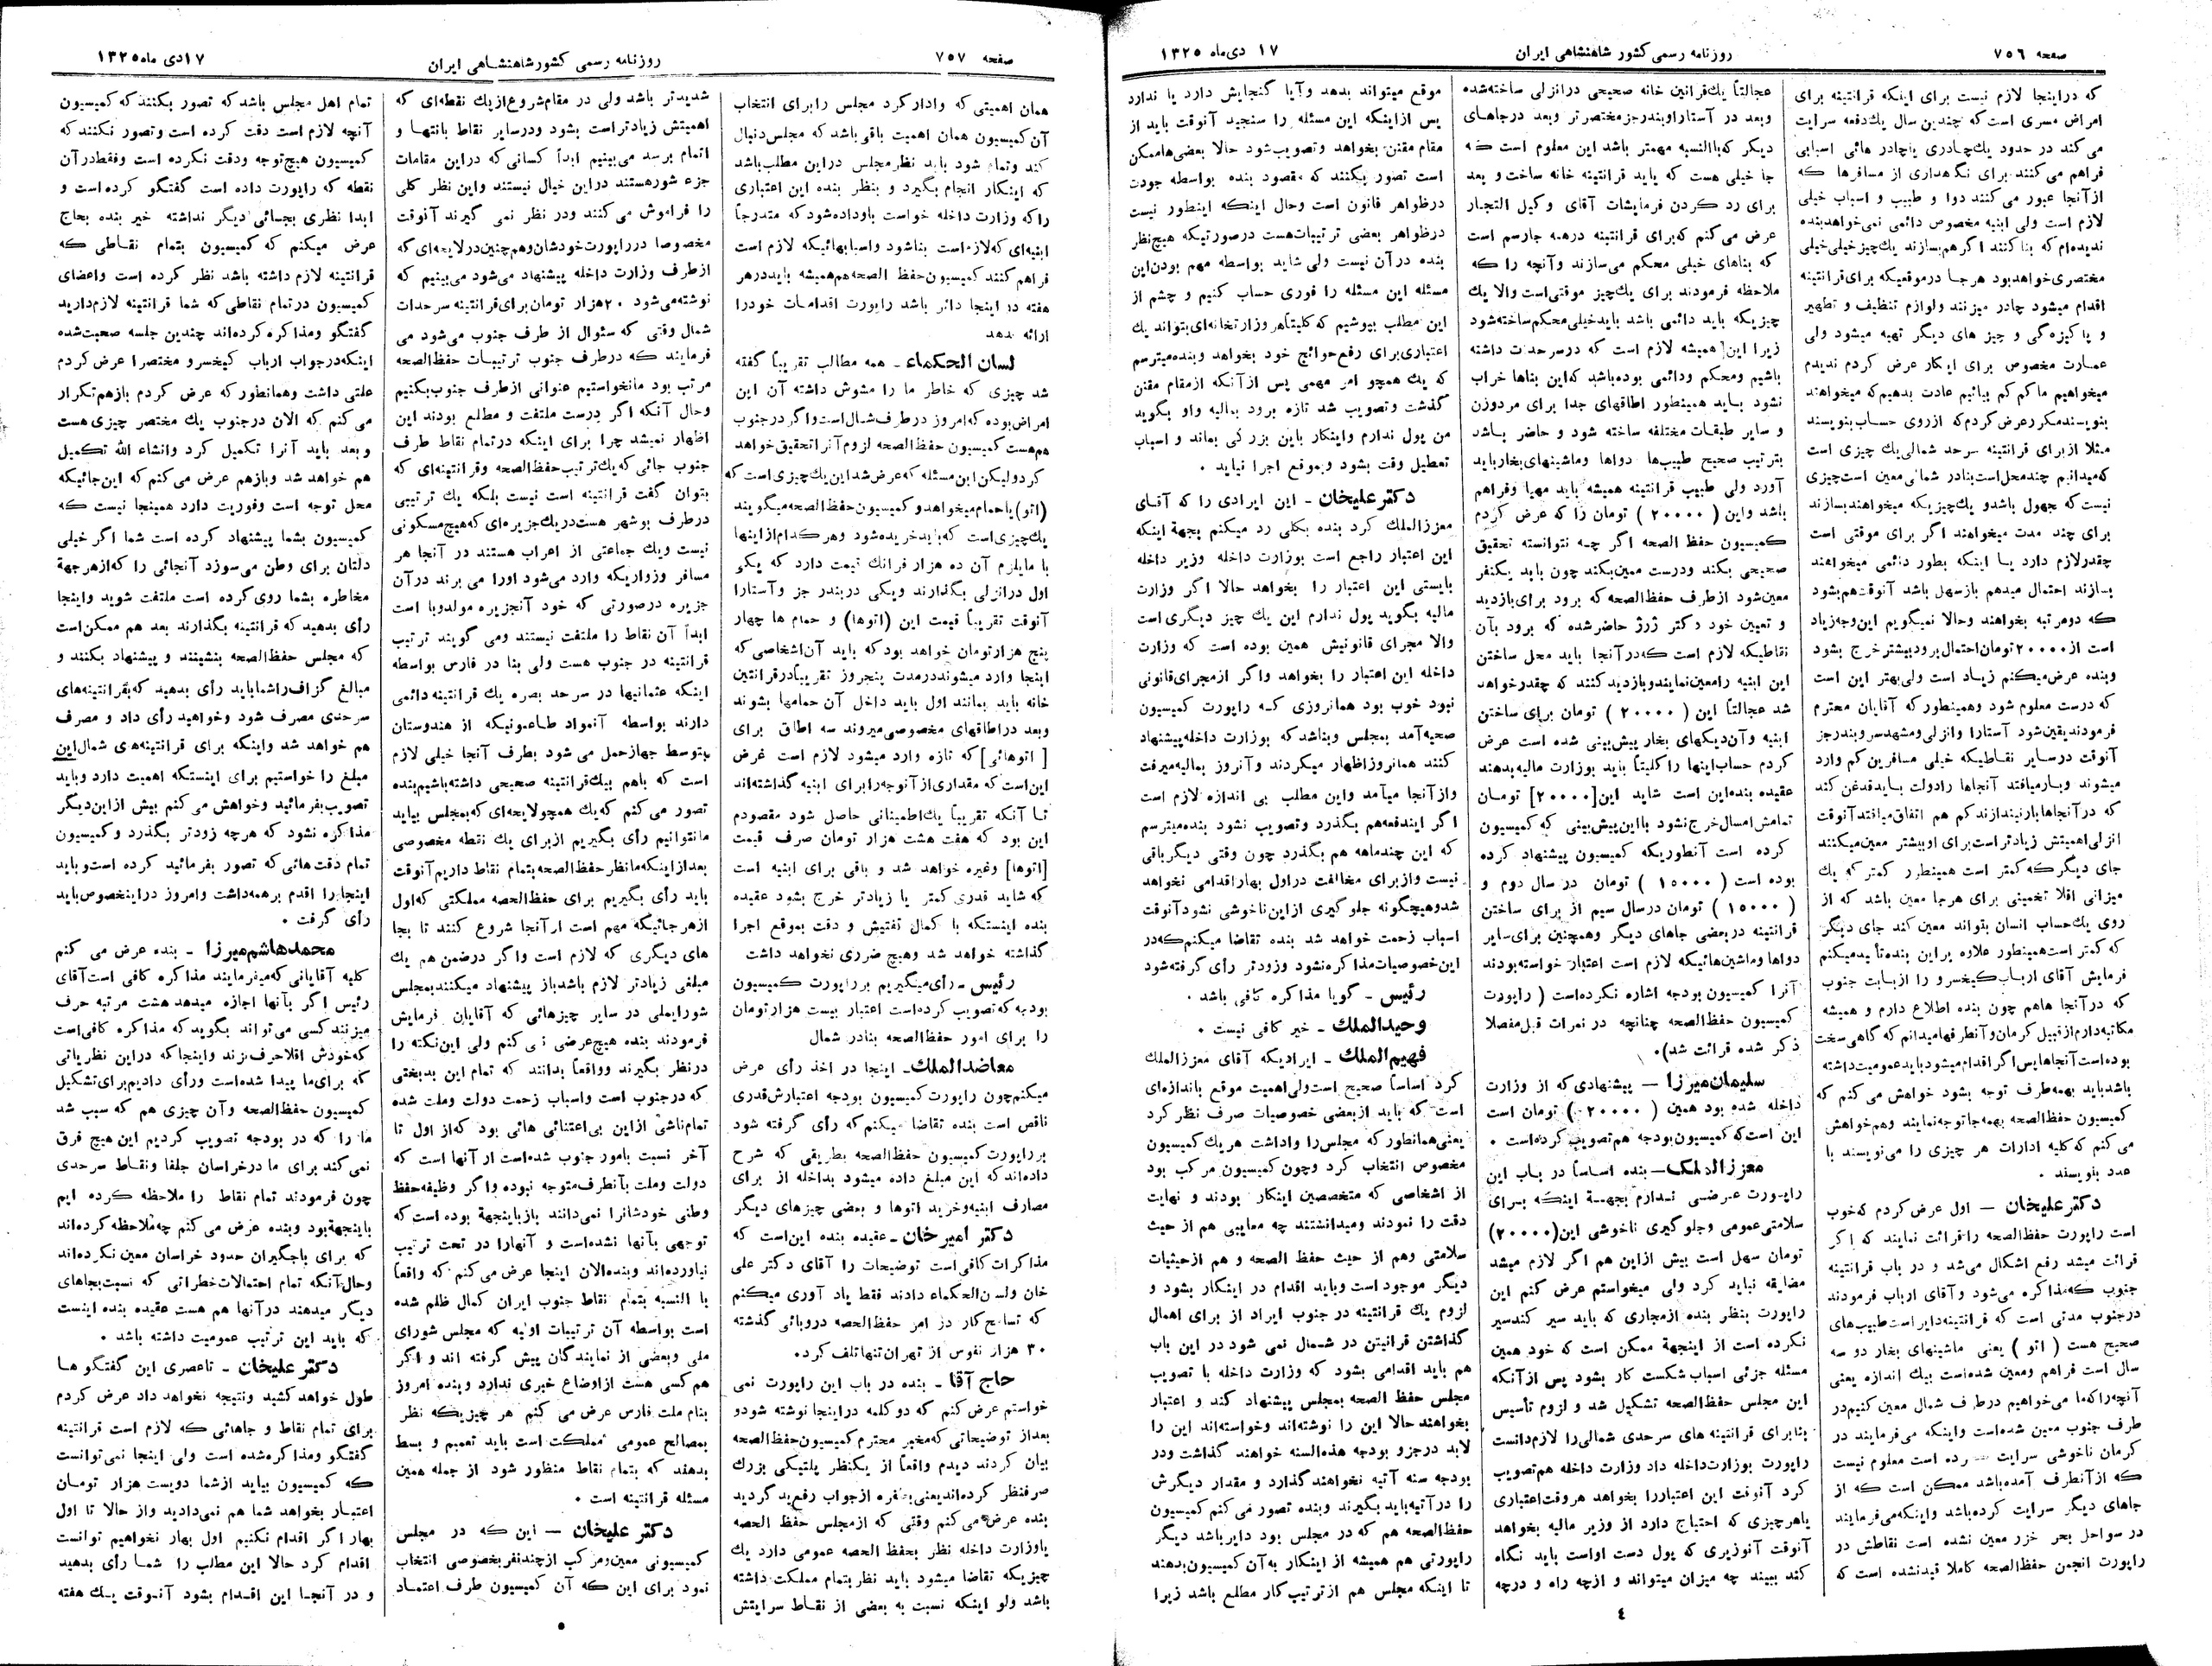 صفحه ۷۵۶
روزنامه رسمی کشور شاهنشاهی ایران
۱۷ دی‌ماه ۱۳۲۵
که دراینجا لازم نیست برای اینکه قرانتینه برای
امراض مسری است که چندین سال یك‌دفعه سرایت
می کند در حدود یك‌چادری یاچادر هائی اسبابی
فراهم می‌کنند برای نگهداری از مسافرها که
ازآنجا عبور می‌کنند دوا و طبیب و اسباب خیلی
لازم است ولی ابنیه مخصوص دائمی نمی‌خواهدبنده
ندیده‌ام که بنا کنند اگرهم‌بسازند یك‌چیزخیلی‌خیلی
مختصری‌خواهدبود هرجا درموقعیکه برای‌قرانتینه
اقدام میشود چادر میزنند ولوازم تنظیف و تطهیر
و پاکیزه‌گی و چیز های دیگر تهیه میشود ولی
عمارت مخصوص برای اینکار عرض کردم ندیدم
میخواهیم ما کم کم بیائیم عادت بدهیم‌که میخواهند
بنویسندمکررعرض‌کردم‌که ازروی حساب‌بنویسند
مثلا ازبرای قرانتینه سرحد شمالی‌یك چیزی است
که‌میدانیم چندمحل‌است‌بنادر شمالی معین است‌چیزی
نیست‌که مجهول باشدو یك‌چیزیکه میخواهندبسازند
برای چند مدت میخواهند اگر برای موقتی است
چقدرلازم دارد یا اینکه بطور دائمی میخواهند
بسازند احتمال میدهم بازسهل باشد آنوقت‌هم‌بشود
که دومرتبه بخواهند وحالا نمیگویم این‌وجه‌زیاد
است از۲۰۰۰۰تومان‌احتمال‌برودبیشترخرج بشود
وبنده عرض‌میکنم زیاد است ولی‌بهتر این است
که درست معلوم شود وهمینطور که آقایان محترم
فرمودندیقین‌شود آستارا وانزلی‌ومشهدسروبندرجز
آنوقت درسایر نقاطیکه خیلی مسافرین کم وارد
میشوند وبارمیافتد آنجاها رادولت بایدقدغن کند
که درآنجاهابارنیندازندکم هم اتفاق‌میافتدآنوقت
انزلی‌اهمیتش زیادتراست‌برای اوبیشتر معین‌میکنند
جای دیگرکه کمتر است همینطور کمتر که یك
میزانی اقلا تخمینی برای هرجا معین باشد که از
روی یك‌حساب انسان بتواند معین کند جای دیگر
که کمتر است‌همینطور علاوه براین بنده‌تأییدمیکنم
فرمایش آقای ارباب‌کیخسرو را ازبابت جنوب
که درآنجا هاهم چون بنده اطلاع دارم و همیشه
مکاتبه‌دارم‌ازقبیل کرمان‌وآنطرفهامیدانم که گاهی‌سخت
بوده‌است‌آنجاهاپس‌اگراقدام‌میشودبایدعمومیت‌داشته
باشدباید بهمه‌طرف توجه بشود خواهش می‌کنم که
کمیسیون حفظ‌الصحه بهمه‌جاتوجه‌نمایند وهم‌خواهش
می کنم که‌کلیه ادارات هر چیزی را می‌نویسند با
عدد بنویسند ۰
دکتر علیخان — اول عرض کردم که‌خوب
است راپورت حفظ‌الصحه راقرائت نمایند که اگر
قرائت میشد رفع اشکال می‌شد و در باب قرانتینه
جنوب که‌مذاکره می‌شود وآقای ارباب فرمودند
درجنوب مدتی است که قرانتینه‌دایراست‌طبیب‌های
صحیح هست ( اتو ) یعنی ماشینهای بخار دو سه
سال است فراهم ومعین شده‌است بیك اندازه یعنی
آنچه‌راکه‌ما می‌خواهیم درطرف شمال معین کنیم‌در
طرف جنوب معین شده‌است واینکه می‌فرمایند در
کرمان ناخوشی سرایت کرده است معلوم نیست
که ازآنطرف آمده‌باشد ممکن است که از
جاهای دیگر سرایت کرده‌باشد واینکه‌می‌فرمایند
در سواحل بحر خزر معین نشده است نقاطش در
راپورت انجمن حفظ‌الصحه کاملا قیدنشده است که
عجالتاً یك‌قرانین خانه صحیحی درانزلی ساخته‌شده
وبعد در آستاراوبندرجزمختصرتر وبعد درجاهای
دیگر که‌باالنسبه مهمتر باشد این معلوم است که
جا خیلی هست که باید قرانتینه خانه ساخت و بعد
برای رد کردن فرمایشات آقای وکیل التجار
عرض می‌کنم که‌برای قرانتینه درهمه جارسم است
که بناهای خیلی محکم می‌سازند وآنچه را که
ملاحظه فرمودند برای یك‌چیز موقتی‌است والا یك
چیزیکه باید دائمی باشد بایدخیلی‌محکم‌ساخته‌شود
زیرا این‌ همیشه لازم است که درسرحدات داشته
باشیم ومحکم ودائمی بوده‌باشد که‌این بناها خراب
نشود بـاید همینطور اطاقهای جدا برای مردوزن
و سایر طبقات مختلفه ساخته شود و حاضر باشد
بترتیب صحیح طبیب‌ها دواها وماشینهای‌بخارباید
آورد ولی طبیب قرانتینه همیشه باید مهیا وفراهم
باشد واین ( ۲۰۰۰۰ ) تومان را که عرض کردم
کمیسیون حفظ الصحه اگر چـه نتوانسته تحقیق
صحیحی بکند ودرست معین‌بکند چون باید یکنفر
معین‌شود ازطرف حفظ‌الصحه‌که برود برای‌بازدید
و تعیین خود دکتر ژرژ حاضرشده که برود بآن
نقاطیکه لازم است که‌درآنجا باید محل ساختن
این ابنیه رامعین‌نمایندوبازدیدکنند که چقدرخواهد
شد عجالتاً این ( ۲۰۰۰۰ ) تومان برای ساختن
ابنیه وآن‌دیگهای بخار پیش‌بینی شده است عرض
کردم حساب‌اینها راکلیتاً باید بوزارت مالیه‌بدهند
عقیده بنده‌این است شاید این[۲۰۰۰۰] تومـان
تمامش‌امسال‌خرج‌نشود بااین‌پیش‌بینی که‌کمیسیون
کرده است آنطوریکه کمیسیون پیشنهاد کرده
بوده است ( ۱۵۰۰۰ ) تومان در سال دوم و
( ۱۵۰۰۰ ) تومان درسال سیم از برای ساختن
قرانتینه دربعضی جاهای دیگر وهمچنین برای‌سایر
دواها وماشین‌هائیکه لازم است اعتبار خواسته‌بودند
آنرا کمیسیون بودجه اشاره نکرده‌است ( راپورت
کمیسیون حفظ‌الصحه چنانچه در نمرات قبل‌مفصلا
ذکر شده قرائت شد)۰
سلیمان‌میرزا — پیشنهادی‌که از وزارت
داخله شده بود همین ( ۲۰۰۰۰ ) تومان است
این است‌که کمیسیون‌بودجه هم‌تصویب‌کرده‌است ۰
معزز‌الملك — بنده اساساً در باب این
راپورت عـرضـی نـدارم بجهـة اینکه بـرای
سلامتی‌عمومی وجلو گیری ناخوشی این(۲۰۰۰۰)
تومان سهل است بیش ازاین هم اگر لازم میشد
مضایقه نباید کرد ولی میخواستم عرض کنم این
راپورت بنظر بنده ازمجاری که باید سیر کندسیر
نکرده است از اینجهة ممکن است که خود همین
مسئله جزئی اسباب شکست کار بشود پس ازآنکه
این مجلس حفظ‌الصحه تشکیل شد و لزوم تأسیس
بنابرای قرانتینه های سرحدی شمالی‌را لازم‌دانست
راپورت بوزارت‌داخله داد وزارت داخله هم‌تصویب
کرد آنوقت این اعتباررا بخواهد هروقت‌اعتباری
یاهرچیزی که احتیاج دارد از وزیر مالیه بخواهد
آنوقت آنوزیری که پول دست اواست باید نگاه
کند ببیند چه میزان میتواند و ازچه راه و درچه
موقع میتواند بدهد وآیا گنجایش دارد یا ندارد
پس ازاینکه این مسئله را سنجید آنوقت باید از
مقام مقنن‌بخواهد وتصویب‌شود حالا بعضی‌هاممکن
است تصور بکنند که مقصود بنده بواسطه جودت
درظواهر قانون است وحال اینکه اینطور نیست
درظواهر بعضی ترتیبات‌هست درصورتیکه هیچ‌نظر
بنده درآن نیست ولی شاید بواسطه مهم بودن‌این
مسئله این مسئله را فوری حساب کنیم و چشم از
این مطلب بپوشیم که کلیتاًهروزارتخانه‌ای‌بتواند یك
اعتباری‌برای رفع‌حوائج خود بخواهد وبنده‌میترسم
که یك همچو امر مهمی پس ازآنکه ازمقام مقنن
گذشت وتصویب شد تازه برود بمالیه واو بگوید
من پول ندارم واینکار باین بزرگی بماند و اسباب
تعطیل وقت بشود وبموقع اجرا نیاید ۰
دکتر علیخان — این ایرادی را که آقـای
معززالملك کرد بنده بکلی رد میکنم بجهة اینکه
این اعتبار راجع است بوزارت داخله وزیر داخله
بایستی این اعتبار را بخواهد حالا اگر وزارت
مالیه بگوید پول ندارم این یك چیز دیگری است
والا مجرای قانونیش همین بوده است که وزارت
داخله این اعتبار را بخواهد واگر ازمجرای‌قانونی
نبود خوب بود همانروزی که راپورت کمیسیون
صحیه‌آمد بمجلس وبناشدکه بوزارت داخله‌پیشنهاد
کنند همانروزاظهار میکردند وآنروز بمالیه‌میرفت
وازآنجا میآمد واین مطلب بی اندازه لازم است
اگر ایندفعه‌هم بگذرد وتصویب نشود بنده‌میترسم
که این چندماهه هم بگذرد چون وقتی دیگرباقی
نیست وازبرای مخالفت دراول بهاراقدامی نخواهد
شدوهیچگونه جلو گیری ازاین‌ناخوشی نشودآنوقت
اسباب زحمت خواهد شد بنده تقاضا میکنم‌که‌در
این‌خصوصیات‌مذاکره‌نشود وزودتر رأی گرفته‌شود
رئیس — گویا مذاکره کافی باشد ۰
وحیدالملك — خیر کافی نیست ۰
فهیم‌الملك — ایرادیکه آقای معززالملك
کرد اساساً صحیح است‌ولی‌اهمیت موقع باندازه‌ای
است که باید ازبعضی خصوصیات صرف نظرکرد
یعنی‌همانطور که مجلس‌را واداشت هریك کمیسیون
مخصوص انتخاب کرد وچون کمیسیون مرکب بود
از اشخاصی که متخصصین اینکار بودند و نهایت
دقت را نمودند ومیدانشتند چه معایبی هم از حیث
سلامتی وهم از حیث حفظ الصحه و هم ازحیثیات
دیگر موجود است وباید اقدام در اینکار بشود و
لزوم یك قرانتینه در جنوب ایراد از برای اهمال
گذاشتن قرانتین در شـمال نمی شود در این باب
هم باید اقدامی بشود که وزارت داخله با تصویب
مجلس حفظ الصحه بمجلس پیشنهاد کند و اعتبار
بخواهند حالا این را نوشته‌اند وخواسته‌اند این را
لابد درجزو بودجه هذه‌السنه خواهند گذاشت ودر
بودجه سنه آتیه نخواهند گذارد و مقدار دیگرش
را درآتیه‌باید بگیرند وبنده تصور می‌کنم کمیسیون
حفظ‌الصحه هم که در مجلس بود دایرباشد دیگر
راپورتی هم همیشه از اینکار به‌آن کمیسیون‌بدهند
تا اینکه مجلس هم ازترتیب‌کار مطلع باشد زیرا
٤
صفحه ۷۵۷
روزنامه رسمی کشورشاهنشاهی ایران
۱۷دی ماه۱۳۲۵
همان اهمیتی که وادارکرد مجلس رابرای انتخاب
آن‌کمیسیون همان اهمیت باقی‌باشد که مجلس‌دنبال
کند وتمام شود باید نظرمجلس دراین مطلب‌باشد
که اینکار انجام بگیرد و بنظر بنده این اعتباری
راکه وزارت داخله خواست باوداده‌شود که متدرجاً
ابنیه‌ای که‌لازم‌است بناشود واسبابهائیکه لازم است
فراهم‌کنند کمیسیون‌حفظ الصحه‌هم‌همیشه بایددرهر
هفته در اینجا دائر باشد راپورت اقدامات خودرا
ارائه بدهد
لسان الحکماء — همه مطالب تقریباً گفته
شد چیزی که خاطر ما را مشوش داشته آن این
امراض‌بوده که‌امروز درطرف‌شمال‌است‌واگردرجنوب
هم‌هست کمیسیون حفظ‌الصحه لزوم‌آنراتحقیق‌خواهد
کردولیکن‌این‌مسئله که‌عرض‌شداین‌یك‌چیزی‌است که
(اتو)یاحمام‌میخواهدوکمیسیون‌حفظ‌الصحه‌میگویند
یك‌چیزی‌است که‌بایدخریده‌شود وهرکدام‌ازاینها
با مایلزم آن ده هزار فرانك قیمت دارد که یکی
اول درانزلی بگذارند ویکی دربندر جز وآستارا
آنوقت تقریباً قیمت این (اتوها) و حمام ها چهار
پنج هزارتومان خواهد بودکه باید آن‌اشخاصی که
اینجا وارد میشونددرمدت پنجروز تقریباًدرقرانتین
خانه باید بمانند اول باید داخل آن حمامها بشوند
وبعد دراطاقهای مخصوصی‌میروند سه اطاق برای
[ اتوهائی]که تازه وارد میشود لازم است غرض
این‌است‌که مقداری‌ازآنوجه‌رابرای ابنیه گذاشته‌اند
تـا آنکه تقریباً یك‌اطمینانی حاصل شود مقصودم
این بود که هفت هشت هزار تومان صرف قیمت
[اتوها] وغیره خواهد شد و باقی برای ابنیه است
که شاید قدری کمتر یا زیادتر خرج بشود عقیده
بنده اینستکه با کمال تفتیش و دقت بموقع اجرا
گذاشته خواهد شد وهیچ ضرری نخواهد داشت
رئیس — رأی‌میگیریم برراپورت کمیسیون
بودجه که‌تصویب کرده‌است اعتبار بیست هزارتومان
را برای امور حفظ‌الصحه بنادر شمال
معاضد‌الملك — اینجا در اخذ رأی عرض
میکنم‌چون راپورت‌کمیسیون بودجه اعتبارش‌قدری
ناقص است بنده تقاضا میکنم‌که رأی گرفته شود
برراپورت کمیسیون حفظ‌الصحه بطریقی که شرح
داده‌اندکه این مبلغ داده میشود بداخله از برای
مصارف ابنیه‌وخرید اتوها و بعضی چیزهای دیگر
دکتر امیرخان — عقیده بنده این‌است که
مذاکرات‌کافی‌است توضیحات را آقای دکتر علی
خان ولسان‌الحکماء دادند فقط یاد آوری میکنم
که تسامح‌کار در امر حفظ‌الصحه دروبائی گذشته
۳۰ هزار نفوس از تهران‌تنهاتلف کرد۰
حاج آقا — بنده در باب این راپورت نمی
خواستم عرض‌کنم که دوکلمه دراینجا نوشته شودو
بعداز توضیحاتی که‌مخبر محترم‌کمیسیون‌حفظ‌الصحه
بیان کردند دیدم واقعاً از یکنظر پلتیکی بزرگ
صرفنظر کرده‌اندیعنی‌بطفره ازجواب رفع‌ید گردید
بنده عرض‌می‌کنم وقتی که ازمجلس حفظ الصحه
یاوزارت داخله نظر بحفظ الصحه عمومی دارد یك
چیزیکه تقاضا میشود باید نظربتمام مملکت‌داشته
باشد ولو اینکه نسبت به بعضی از نقـاط سرایتش
شدیدتر باشد ولی در مقام‌شروع‌ازیك نقطه‌ای که
اهمیتش زیادتراست بشود ودرسایر نقاط بانتها و
اتمام برسد می‌بینیم ابداً کسانی‌که دراین مقامات
جزء شورهستند دراین خیال نیستند واین نظر کلی
را فراموش می‌کنند ودر نظر نمی گیرند آنوقت
مخصوصا درراپورت‌خودشان‌وهم‌چنین‌درلایحه‌ای‌که
ازطرف وزارت داخله پیشنهاد می‌شود می‌بینیم که
نوشته‌می‌شود ۲۰هزار تومان‌برای‌قرانتینه سرحدات
شمال وقتی که سئوال از طرف جنوب می‌شود می
فرمایند که درطرف جنوب ترتیبات حفظ‌الصحه
مرتب بود مانخواستیم عنوانی ازطرف جنوب‌بکنیم
وحال آنکه اگر درست ملتفت و مطلع بودند این
اظهار نمیشد چرا برای اینکه درتمام نقاط طرف
جنوب جائی که‌یك‌ترتیب‌حفظ‌الصحه وقرانتینه‌ای که
بتوان گفت قرانتینه است نیست بلکه یك ترتیبی
درطرف بوشهر هست‌دریك‌جزیره‌ای که‌هیچ‌مسکونی
نیست ویك جماعتی از اعراب هستند در آنجا هر
مسافر وزواریکه وارد می‌شود اورا می برند درآن
جزیره درصورتی که خود آنجزیره مولدوبا است
ابداً آن نقاط را ملتفت نیستند ومی گویند ترتیب
قرانتینه در جنوب هست ولی بنا در فارس بواسطه
اینکه عثمانیها در سرحد بصره یك قرانتینه‌دائمی
دارند بواسطه آنمواد طـاعمونیکه از هندوستان
بتوسط جهازحمل می شود بطرف آنجا خیلی لازم
است که باهم بیك‌قرانتینه صحیحی داشته‌باشیم‌بنده
تصور می کنم که‌یك همچولایحه‌ای که‌بمجلس بیاید
مانتوانیم رأی بگیریم ازبرای یك نقطه مخصوصی
بعدازاینکه‌مانظرحفظ‌الصحه‌بتمام نقاط داریم‌آنوقت
باید رأی بگیریم برای حفظ‌الحصه مملکتی که‌اول
ازهرجائیکه مهم است ازآنجا شروع کنند تا بجا
های دیگری که لازم است واگر درضمن هم یك
مبلغی زیادتر لازم باشدباز پیشنهاد میکنندبمجلس
شورایملی در سایر چیزهائی که آقایان فرمایش
فرمودند بنده هیچ‌عرضی نمی کنم ولی این‌نکته را
درنظر بگیرند وواقعاً بدانند که تمام این بدبختی
که درجنوب است واسباب زحمت دولت وملت شده
تمام‌ناشی ازاین بی‌اعتنائی هائی بود که‌از اول تا
آخر نسبت بامور جنوب شده‌است ازآنها است که
دولت وملت بآنطرف‌متوجه نبوده واگر وظیفه‌حفظ
وطنی خودشانرا نمی‌دانند بازباینجهة بوده است‌که
توجهی بآنها نشده‌است و آنهارا در تحت ترتیب
نیاورده‌اند وبنده‌الان اینجا عرض می‌کنم که واقعاً
با النسبه بتمام نقاط جنوب ایران کمال ظلم شده
است بواسطه آن ترتیبات اولیه که مجلس شورای
ملی وبعضی از نمایندگان پیش گرفته اند و اگر
هم‌کسی هست ازاوضاع خبری ندارد وبنده امروز
بنام ملت فارس عرض می کنم هر چیزیکه نظر
بمصالح عمومی مملکت است باید تعمیم و بسط
بدهند که بتمام نقاط منظور شود از جمله همین
مسئله قرانتینه است ۰
دکتر علیخان — این که در مجلس
کمیسیونی معین‌ومرکب ازچندنفربخصوصی انتخاب
نمود برای این که آن کمیسیون طرف اعتمـاد
تمام اهل مجلس باشدکه تصور بکنندکه کمیسیون
آنچه لازم است دقت کرده است وتصور نکنند که
کمیسیون هیچ‌توجه ودقت نکرده است وفقط‌درآن
نقطه که راپورت داده است گفتگو کرده‌است و
ابدا نظری بجـائی‌دیگر نداشته خیر بنده بحاج
عرض میکنم که کمیسیون بتمام نقـاطی که
قرانتینه لازم داشته باشد نظر کرده است واعضای
کمیسیون درتمام نقاطی‌که شما قرانتینه لازم‌دارید
گفتگو ومذاکره‌کرده‌اند چندین جلسه صحبت‌شده
اینکه‌درجواب ارباب کیخسرو مختصراعرض‌کردم
علتی داشت وهمانطورکه عرض کردم بازهم‌تکرار
می‌کنم که الان درجنوب یك مختصر چیزی‌هست
و بعد باید آنرا تکمیل کرد وانشاء الله تکمیل
هم خواهد شد وبازهم عرض می‌کنم که این‌جائیکه
محل توجه است وفوریت دارد همینجا نیست که
کمیسیون بشما پیشنهاد کرده است شما اگر خیلی
دلتان برای وطن می‌سوزد آنجائی را که‌ازهرجهة
مخاطره بشما روی‌کرده است ملتفت شوید واینجا
رأی بدهیدکه قرانتینه بگذارند بعد هم ممکن‌است
که مجلس حفظ‌الصحه بنشینند و پیشنهاد بکنند و
مبالغ گزاف‌راشماباید رأی بدهید که‌بقرانتینه‌های
سرحدی مصرف شود وخواهیدرأی داد و مصرف
هم خواهد شد واینکه برای قرانتینه‌های شمال‌این
مبلغ را خواستیم برای اینستکه اهمیت دارد وباید
تصویب‌بفرمائید وخواهش می‌کنم بیش ازاین‌دیگر
مذاکره نشود که هرچه زودتر بگذرد وکمیسیون
تمام دقت‌هائی که تصور بفرمائید کرده است‌وباید
اینجارا اقدم برهمه‌داشت وامروز دراینخصوص‌باید
رأی گرفت ۰
محمدهاشم‌میرزا — بنده عرض می کنم
کلیه آقایانی‌که‌میفرمایند مذاکره کافی است‌آقای
رئیس اگر بآنها اجازه میدهد هشت مرتبه حرف
میزنند کسی می‌تواند بگوید که مذاکره کافی‌است
که‌خودش اقلاحرف‌نزند واینجاکه دراین نظریاتی
که برای‌ما پیدا شده‌است ورأی دادیم‌برای‌تشکیل
کمیسیون حفظ‌الصحه وآن چیزی هم که سبب شد
ما را که در بودجه تصویب کردیم این هیچ فرق
نمی‌کند برای ما درخراسان جلفا ونقـاط سرحدی
چون فرمودند تمام نقاط را ملاحظه کرده ایم
باینجهةبود وبنده عرض می کنم چه‌ملاحظه کرده‌اند
که برای باجگیران حدود خراسان معین نکرده‌اند
وحال‌آنکه تمام احتمالات‌خطراتی که نسبت‌بجاهای
دیگر میدهند درآنها هم هست عقیده بنده اینست
که باید این ترتیب عمومیت داشته باشد ۰
دکتر علیخان — تاعصری این گفتگو هـا
طول خواهد کشید ونتیجه نخواهد داد عرض کردم
برای تمام نقاط و جاهائی که لازم است قرانتینه
گفتگو ومذاکره‌شده است ولی اینجا نمی‌توانست
که کمیسیون بیاید ازشما دویست هزار تومـان
اعتبـار بخواهد شما هم نمی‌دادید واز حالا تا اول
بهار اگر اقدام نکنیم اول بهار نخواهیم توانست
اقدام کرد حالا این مطلب را شمـا رأی بدهید
و در آنجـا این اقـدام بشود آنـوقت یـك هفته